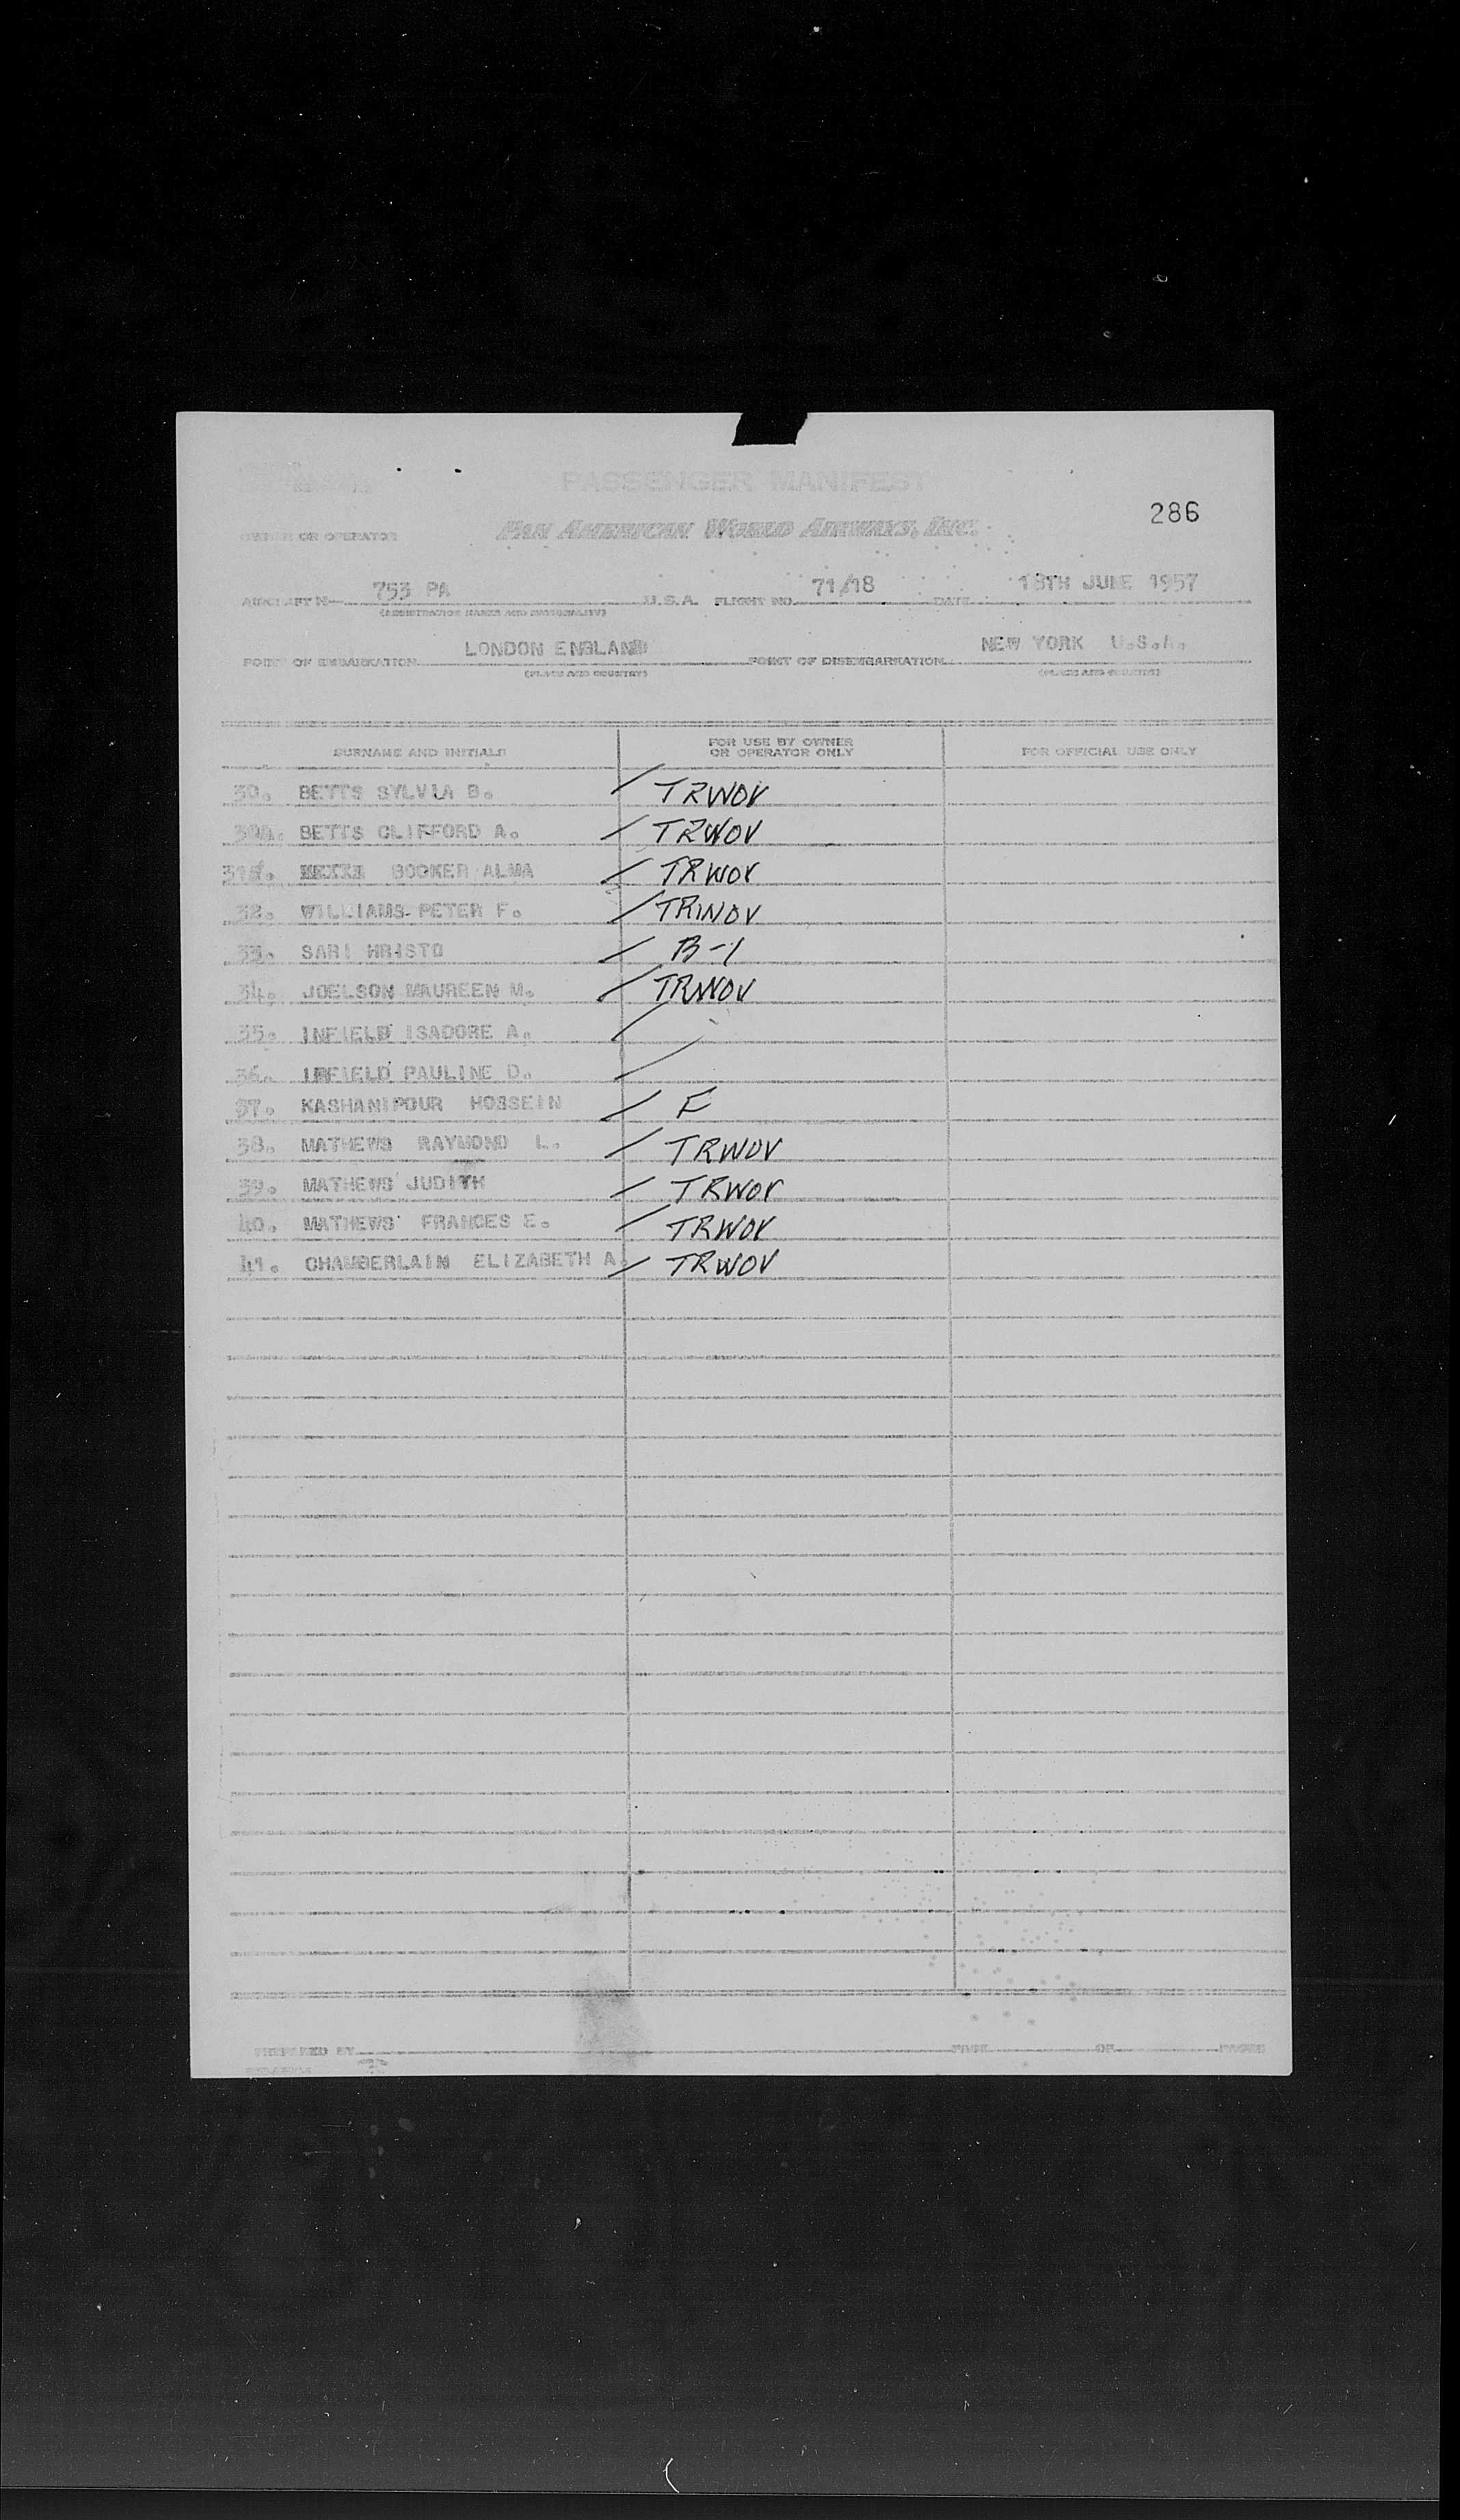 PASSENGER MANIFEST
286
OWNER OR OPERATOR PAN AMERICAN WORLD AIRWAYS, INC.
AIRCRAFT N— 753 PA U.S.A. FLIGHT NO. 71/18 DATE 18TH JUNE 1957
(REGISTRATION MARKS AND NATIONALITY)
POINT OF EMBARKATION LONDON ENGLAND POINT OF DISEMBARKATION NEW YORK U.S.A.
(PLACE AND COUNTRY) (PLACE AND COUNTRY)
SURNAME AND INITIALS FOR USE BY OWNER OR OPERATOR ONLY FOR OFFICIAL USE ONLY
30. BETTS SYLVIA B. / TRWOV
30A. BETTS CLIFFORD A. / TRWOV
31. BOOKER ALMA / TRWOV
32. WILLIAMS PETER F. / TRWOV
33. SARI HRISTO / B-1
34. JOELSON MAUREEN M. / TRWOV
35. INFIELD ISADORE A. /
36. INFIELD PAULINE D. /
37. KASHANIPOUR HOSSEIN / F
38. MATHEWS RAYMOND L. / TRWOV
39. MATHEWS JUDITH / TRWOV
40. MATHEWS FRANCES E. / TRWOV
41. CHAMBERLAIN ELIZABETH A. / TRWOV
PREPARED BY PAGE OF PAGES